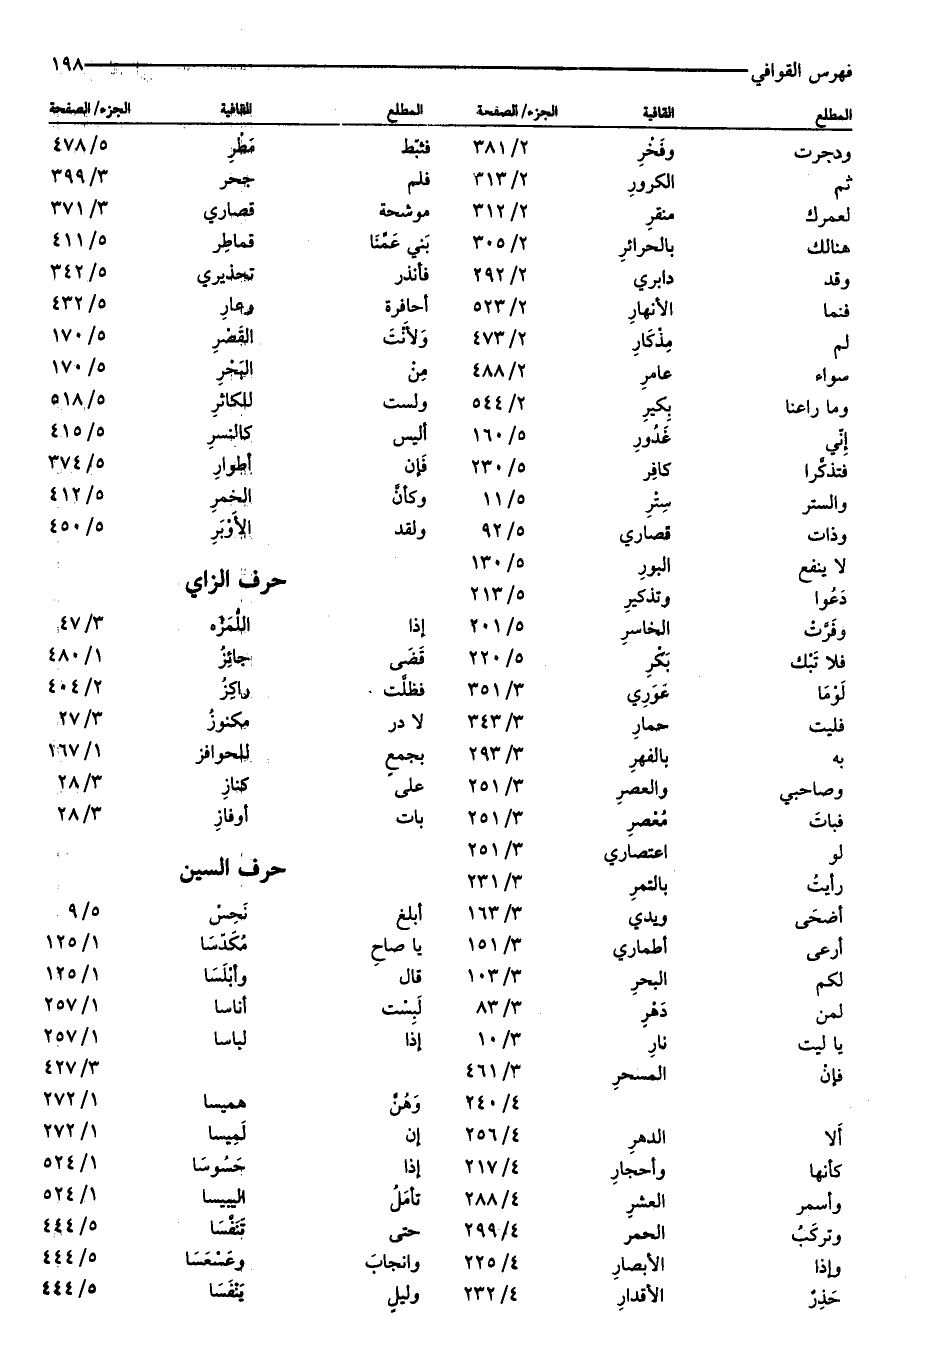 فهرس القوافي ١٩٨
المطلع القافية الجزء/ الصفحة
ودجرت وفَخْرِ ٣٨١/٢
ثم الكرورِ ٣١٣/٢
لعمرك منقرِ ٣١٢/٢
هنالك بالحرائرِ ٣٠٥/٢
وقد دابري ٢٩٢/٢
فنما الأنهارِ ٥٢٣/٢
لم مِذْكَارِ ٤٧٣/٢
سواء عامرِ ٤٨٨/٢
وما راعنا بِكيرِ ٥٤٤/٢
إنّي غَدُورِ ١٦٠/٥
فتذكَّرا كافِر ٢٣٠/٥
والستر سِتْرِ ١١/٥
وذات قصاري ٩٢/٥
لا ينفع البورِ ١٣٠/٥
دَعُوا وتذكيرِ ٢١٣/٥
وفَرَّتْ الخاسرِ ٢٠١/٥
فلا تَبْك بَكْرِ ٢٢٠/٥
لَوْمَا عَوَرِي ٣٥١/٣
فليت حمارِ ٣٤٣/٣
به بالفهرِ ٢٩٣/٣
وصاحبي والعصرِ ٢٥١/٣
فباتَ مُعْصرِ ٢٥١/٣
لو اعتصاري ٢٥١/٣
رأيتُ بالتمرِ ٢٣١/٣
أضحَى ويدي ١٦٣/٣
أرعى أطماري ١٥١/٣
لكم البحرِ ١٠٣/٣
لمن دَهْرِ ٨٣/٣
يا ليت نارِ ١٠/٣
فإنْ المسحرِ ٤٦١/٣
٢٤٠/٤
أَلا الدهرِ ٢٥٦/٤
كأنها وأحجارِ ٢١٧/٤
وأسمر العشرِ ٢٨٨/٤
وتركَبُ الحمر ٢٩٩/٤
وإذا الأبصارِ ٢٢٥/٤
حَذِرٌ الأقدارِ ٢٣٢/٤
المطلع القافية الجزء/ الصفحة
فثبّط مَطْرِ ٤٧٨/٥
فلم جحر ٣٩٩/٣
موشحة قصاري ٣٧١/٣
بَني عَمِّنَا قماطِر ٤١١/٥
فأنذر تحذيري ٣٤٢/٥
أحافرة وعارِ ٤٣٢/٥
وَلأَنْتَ القَصْرِ ١٧٠/٥
مِنْ الهَجْرِ ١٧٠/٥
ولست للكاثرِ ٥١٨/٥
أليس كالنسرِ ٤١٥/٥
فَإن أطوارِ ٣٧٤/٥
وكأنَّ الخمرِ ٤١٢/٥
ولقد الأَوْبَرِ ٤٥٠/٥
حرف الزاي
إذا اللُّمَزْه ٤٧/٣
قَضَى جائِزُ ٤٨٠/١
فظلَّت راكِزُ ٤٠٤/٢
لا در مكنوزُ ٢٧/٣
بجمعٍ للحوافز ١٦٧/١
على كنازِ ٢٨/٣
بات أوفازِ ٢٨/٣
حرف السين
أبلغ نَحِسْ ٩/٥
يا صاحِ مُكَدّسَا ١٢٥/١
قال وأَبْلَسَا ١٢٥/١
لَبِسْت أناسا ٢٥٧/١
إذا لباسا ٢٥٧/١
٤٢٧/٣
وَهُنَّ هميسا ٢٧٢/١
إن لَمِيسا ٢٧٢/١
إذا حَسُوسَا ٥٢٤/١
تأمَلُ البيسا ٥٢٤/١
حتى تَنَفَّسَا ٤٤٤/٥
وانجابَ وعَسْعَسَا ٤٤٤/٥
وليلٍ يَنْفَسَا ٤٤٤/٥